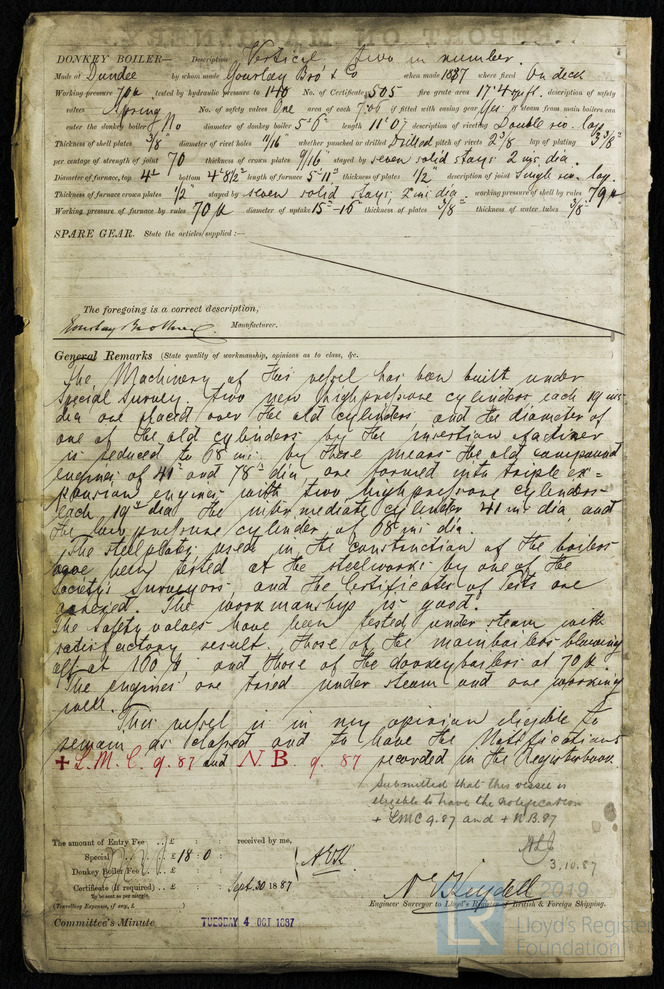 DONKEY BOILER— Description Vertical two in number.
Made at Dundee by whom made Gourlay Bro's & Co when made 1887 where fixed On deck
Working pressure 70 lb tested by hydraulic pressure to 140 No. of Certificate 505 fire grate area 17·4 sq ft. description of safety
valves Spring No. of safety valves One area of each 7·06 if fitted with easing gear Yes if steam from main boilers can
enter the donkey boiler No diameter of donkey boiler 5'-6" length 11'0" description of riveting Double riv. lap
Thickness of shell plates 3/8 diameter of rivet holes 11/16" whether punched or drilled Drilled pitch of rivets 2 3/8 lap of plating 3 3/8"
per centage of strength of joint 70 thickness of crown plates 9/16" stayed by seven solid stays 2 ins. dia.
Diameter of furnace, top 4'2" bottom 4'8 1/2" length of furnace 5'-11" thickness of plates 1/2" description of joint Single riv. lap.
Thickness of furnace crown plates 1/2" stayed by seven solid stays, 2 ins dia - working pressure of shell by rules 79 lb
Working pressure of furnace by rules 70 lb diameter of uptake 15"-16" thickness of plates 3/8" thickness of water tubes 3/8"
SPARE GEAR. State the articles supplied:—
The foregoing is a correct description,
Gourlay Brothers Manufacturer.
General Remarks (State quality of workmanship, opinions as to class, &c.
The Machinery of this vessel has been built under
Special Survey. Two new high pressure cylinders each 19 ins
dia are placed over the old cylinders and the diameter of
one of the old cylinders by the insertion of a liner
is reduced to 68 ins. by these means the old compound
engines of 41" and 78" dia. are formed into triple ex=
pansion engines with two high pressure cylinders
each 19" dia. the intermediate cylinder 41 ins dia and
the low pressure cylinder of 68 ins dia.
The steel plates used in the construction of the boilers
have been tested at the steelworks by one of the
Society's Surveyors and the Certificates of Tests are
annexed. The workmanship is good.
The safety valves have been tested under steam with
satisfactory result, those of the main boilers blowing
off at 100 lb and those of the donkey boilers at 70 lb.
The engines are tried under steam and are working
well.
This vessel is in my opinion eligible to
remain as classed and to have the Notifications
+ L.M.C. 9.87 and N.B. 9.87 recorded in the Register book.
Submitted that this vessel is
eligible to have the notification
+ LMC 9.87 and + NB.87
3.10.87
The amount of Entry Fee .. £ : : received by me,
Special .. .. £ 18 : 0 :
Donkey Boiler Fee .. £ : :
Certificate (if required) .. £ : : Sept. 30 1887
To be sent as per margin.
(Travelling Expenses, if any, £ )
Engineer Surveyor to Lloyd's Register of British & Foreign Shipping.
Committee's Minute TUESDAY 4 OCT 1887
© 2019
LR
Lloyd's Register
Foundation